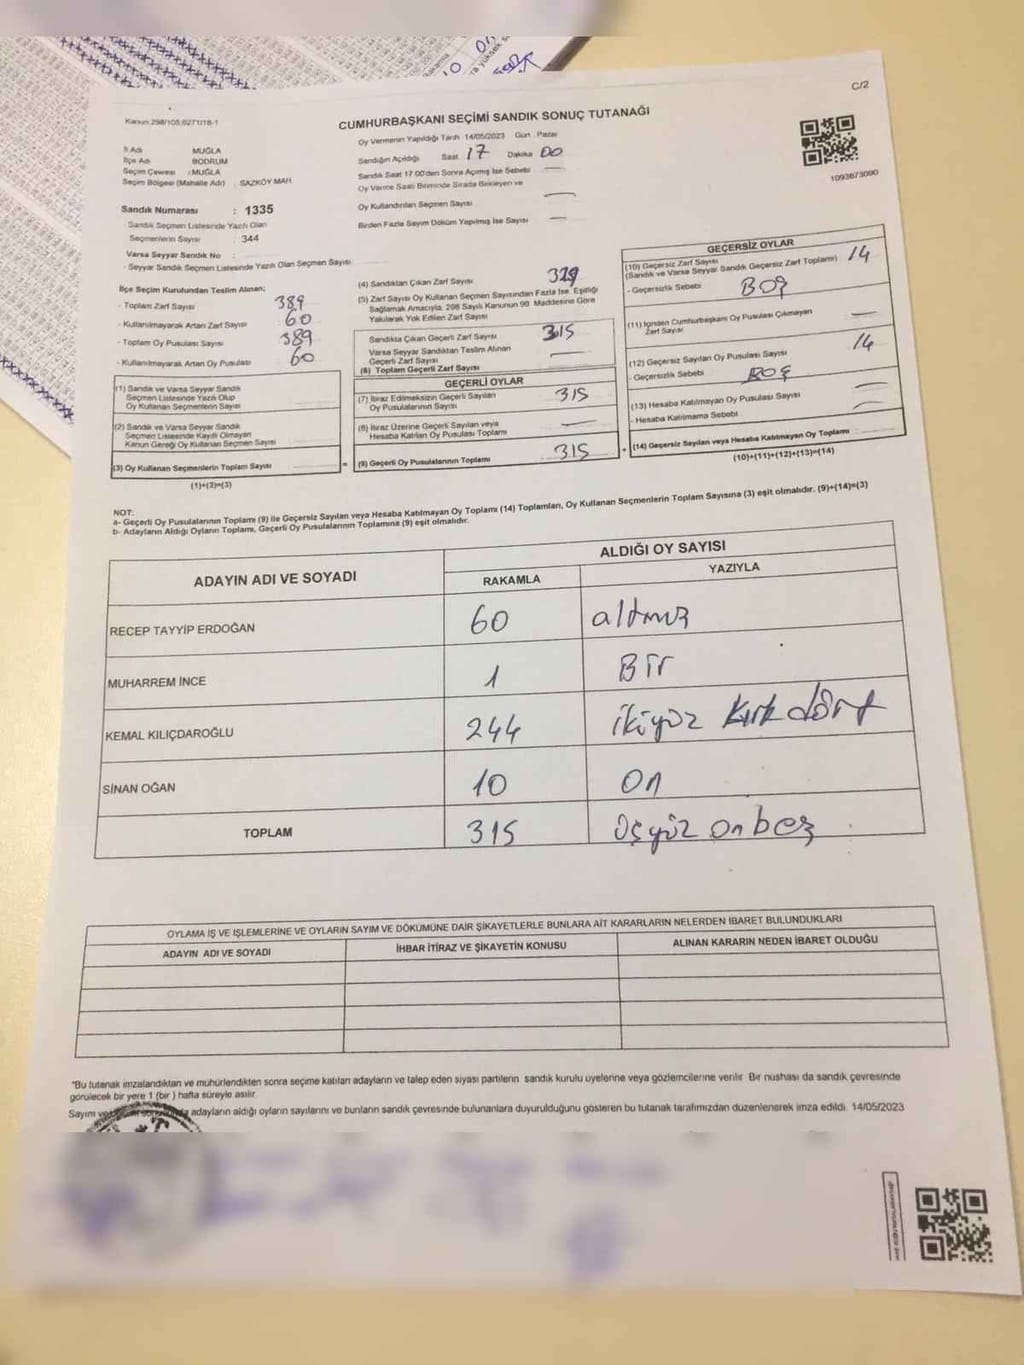 C/2
Kanun:298/105;6271/18-1
CUMHURBAŞKANI SEÇİMİ SANDIK SONUÇ TUTANAĞI
Oy Vermenin Yapıldığı Tarih 14/05/2023 Gün : Pazar
İl Adı : MUĞLA
İlçe Adı : BODRUM
Seçim Çevresi : MUĞLA
Seçim Bölgesi (Mahalle Adı) : SAZKÖY MAH.
Sandığın Açıldığı Saat 17 Dakika 00
Sandık Saat 17.00'den Sonra Açılmış İse Sebebi
Oy Verme Saati Bitiminde Sırada Bekleyen ve
Oy Kullandırılan Seçmen Sayısı
Birden Fazla Sayım Döküm Yapılmış İse Sayısı
1093873090
Sandık Numarası : 1335
Sandık Seçmen Listesinde Yazılı Olan
Seçmenlerin Sayısı : 344
Varsa Seyyar Sandık No :
- Seyyar Sandık Seçmen Listesinde Yazılı Olan Seçmen Sayısı
İlçe Seçim Kurulundan Teslim Alınan;
- Toplam Zarf Sayısı 389
- Kullanılmayarak Artan Zarf Sayısı 60
- Toplam Oy Pusulası Sayısı 389
- Kullanılmayarak Artan Oy Pusulası 60
(1) Sandık ve Varsa Seyyar Sandık
Seçmen Listesinde Yazılı Olup
Oy Kullanan Seçmenlerin Sayısı
(2) Sandık ve Varsa Seyyar Sandık
Seçmen Listesinde Kayıtlı Olmayan
Kanun Gereği Oy Kullanan Seçmen Sayısı
(3) Oy Kullanan Seçmenlerin Toplam Sayısı
(1)+(2)=(3)
(4) Sandıktan Çıkan Zarf Sayısı 329
(5) Zarf Sayısı Oy Kullanan Seçmen Sayısından Fazla İse, Eşitliği
Sağlamak Amacıyla, 298 Sayılı Kanunun 98. Maddesine Göre
Yakılarak Yok Edilen Zarf Sayısı
Sandıkta Çıkan Geçerli Zarf Sayısı 315
Varsa Seyyar Sandıktan Teslim Alınan
Geçerli Zarf Sayısı
(6) Toplam Geçerli Zarf Sayısı
GEÇERLİ OYLAR
(7) İtiraz Edilmeksizin Geçerli Sayılan
Oy Pusulalarının Sayısı 315
(8) İtiraz Üzerine Geçerli Sayılan veya
Hesaba Katılan Oy Pusulası Toplamı
(9) Geçerli Oy Pusulalarının Toplamı 315
GEÇERSİZ OYLAR
(10) Geçersiz Zarf Sayısı
(Sandık ve Varsa Seyyar Sandık Geçersiz Zarf Toplamı) 14
- Geçersizlik Sebebi BOŞ
(11) İçinden Cumhurbaşkanı Oy Pusulası Çıkmayan
Zarf Sayısı
(12) Geçersiz Sayılan Oy Pusulası Sayısı 14
- Geçersizlik Sebebi BOŞ
(13) Hesaba Katılmayan Oy Pusulası Sayısı
- Hesaba Katılmama Sebebi
(14) Geçersiz Sayılan veya Hesaba Katılmayan Oy Toplamı
(10)+(11)+(12)+(13)=(14)
NOT:
a- Geçerli Oy Pusulalarının Toplamı (9) ile Geçersiz Sayılan veya Hesaba Katılmayan Oy Toplamı (14) Toplamları, Oy Kullanan Seçmenlerin Toplam Sayısına (3) eşit olmalıdır. (9)+(14)=(3)
b- Adayların Aldığı Oyların Toplamı, Geçerli Oy Pusulalarının Toplamına (9) eşit olmalıdır.
ADAYIN ADI VE SOYADI
ALDIĞI OY SAYISI
RAKAMLA YAZIYLA
RECEP TAYYİP ERDOĞAN 60 altmış
MUHARREM İNCE 1 Bir
KEMAL KILIÇDAROĞLU 244 ikiyüz kırk dört
SİNAN OĞAN 10 On
TOPLAM 315 üçyüz onbeş
OYLAMA İŞ VE İŞLEMLERİNE VE OYLARIN SAYIM VE DÖKÜMÜNE DAİR ŞİKAYETLERLE BUNLARA AİT KARARLARIN NELERDEN İBARET BULUNDUKLARI
ADAYIN ADI VE SOYADI İHBAR İTİRAZ VE ŞİKAYETİN KONUSU ALINAN KARARIN NEDEN İBARET OLDUĞU
*Bu tutanak imzalandıktan ve mühürlendikten sonra seçime katılan adayların ve talep eden siyasi partilerin sandık kurulu üyelerine veya gözlemcilerine verilir. Bir nüshası da sandık çevresinde
görülecek bir yere 1 (bir) hafta süreyle asılır.
Sayım ve adayların aldığı oyların sayılarını ve bunların sandık çevresinde bulunanlara duyurulduğunu gösteren bu tutanak tarafımızdan düzenlenerek imza edildi. 14/05/2023